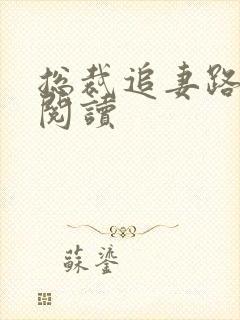 总裁追妻路
閱讀
蘇鎏